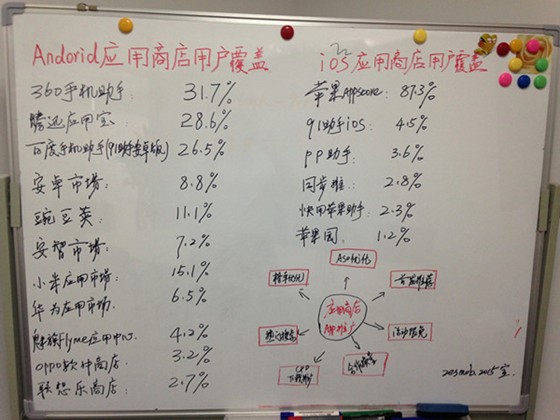 Andorid应用商店用户覆盖
360手机助手: 31.7%
腾迅应用宝: 28.6%
百度手机助手(91助手安卓版) 26.5%
安卓市场: 8.8%
豌豆荚: 11.1%
安智市场: 7.2%
小米应用市场: 15.1%
华为应用市场. 6.5%
魅族Flyme应用中心. 4.2%
oppo软件商店: 3.2%
联想乐商店: 2.7%
iOS应用商店用户覆盖
苹果Appscore: 87.3%
91助手iOS: 4.5%
pp助手: 3.6%
同步推: 2.8%
快用苹果助手: 2.3%
苹果园: 1.2%
ASO优化
首发推荐
活动
合作
CPD
应用商店
推广